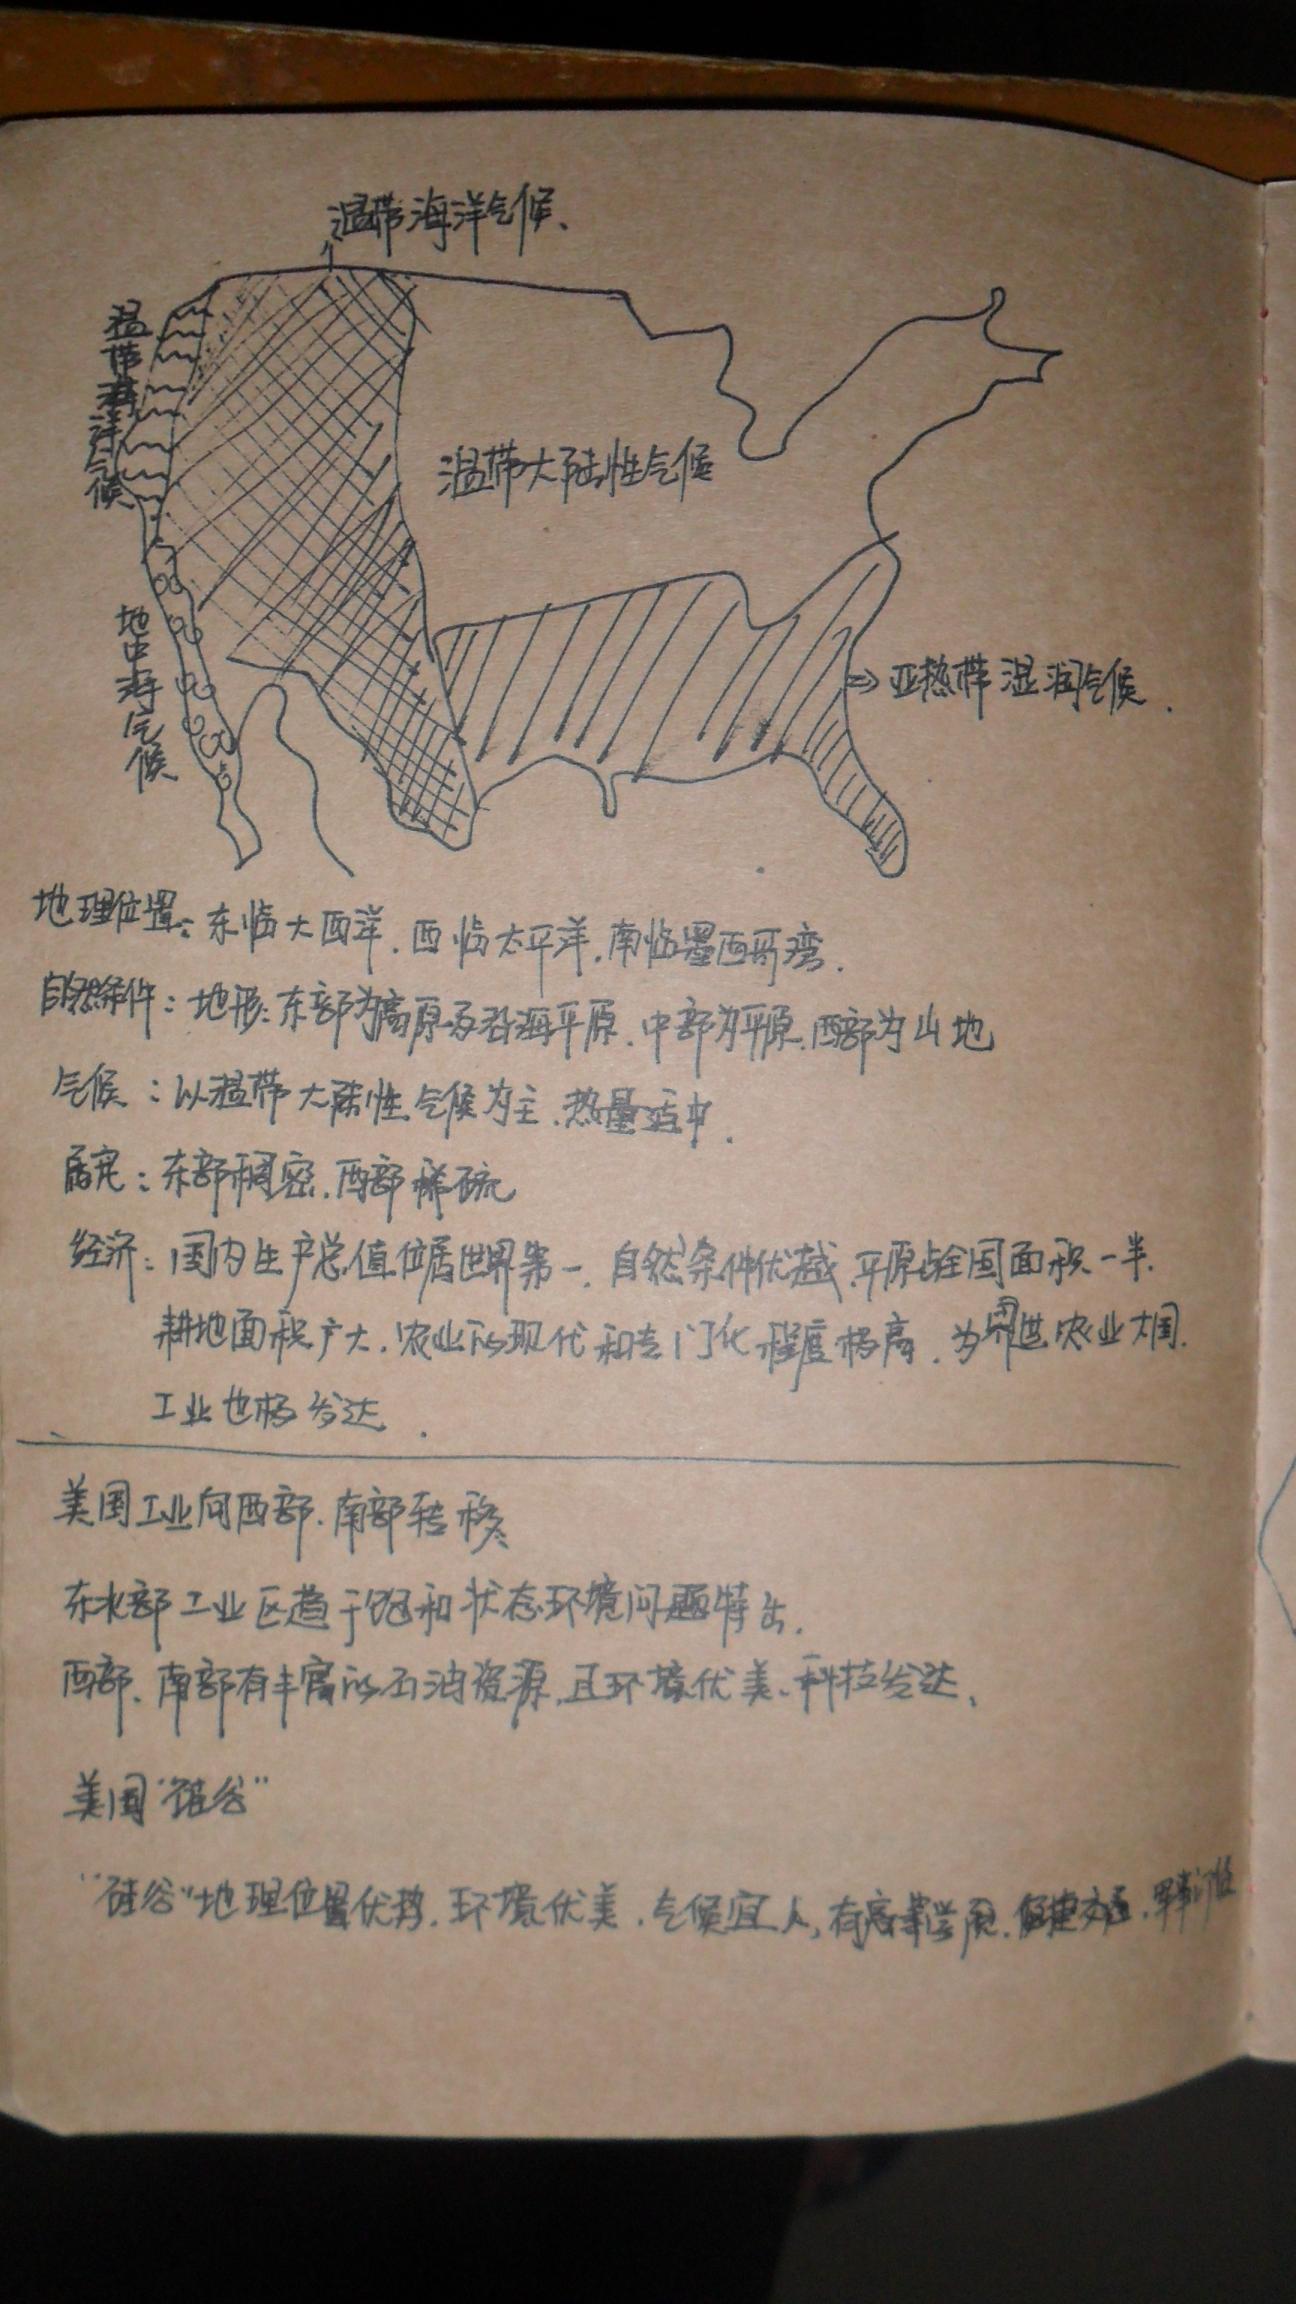 温带海洋气候、
温带海洋气候
温带大陆性气候
地中海气候
⇒亚热带湿润气候.
地理位置:东临大西洋.西临太平洋.南临墨西哥湾.
自然条件:地形:东部为高原及沿海平原.中部为平原.西部为山地
气候:以温带大陆性气候为主.热量适中.
居民:东部稠密.西部稀疏
经济:国内生产总值位居世界第一.自然条件优越.平原占全国面积一半.
耕地面积广大.农业的现代和专门化程度极高.为界世农业大国.
工业也极发达.
美国工业向西部.南部转移
东北部工业区趋于饱和状态环境问题特出.
西部、南部有丰富的石油资源.且环境优美、科技发达、
美国“硅谷”
“硅谷”地理位置优势.环境优美.气候宜人,有高等学府.便捷交通.军事订